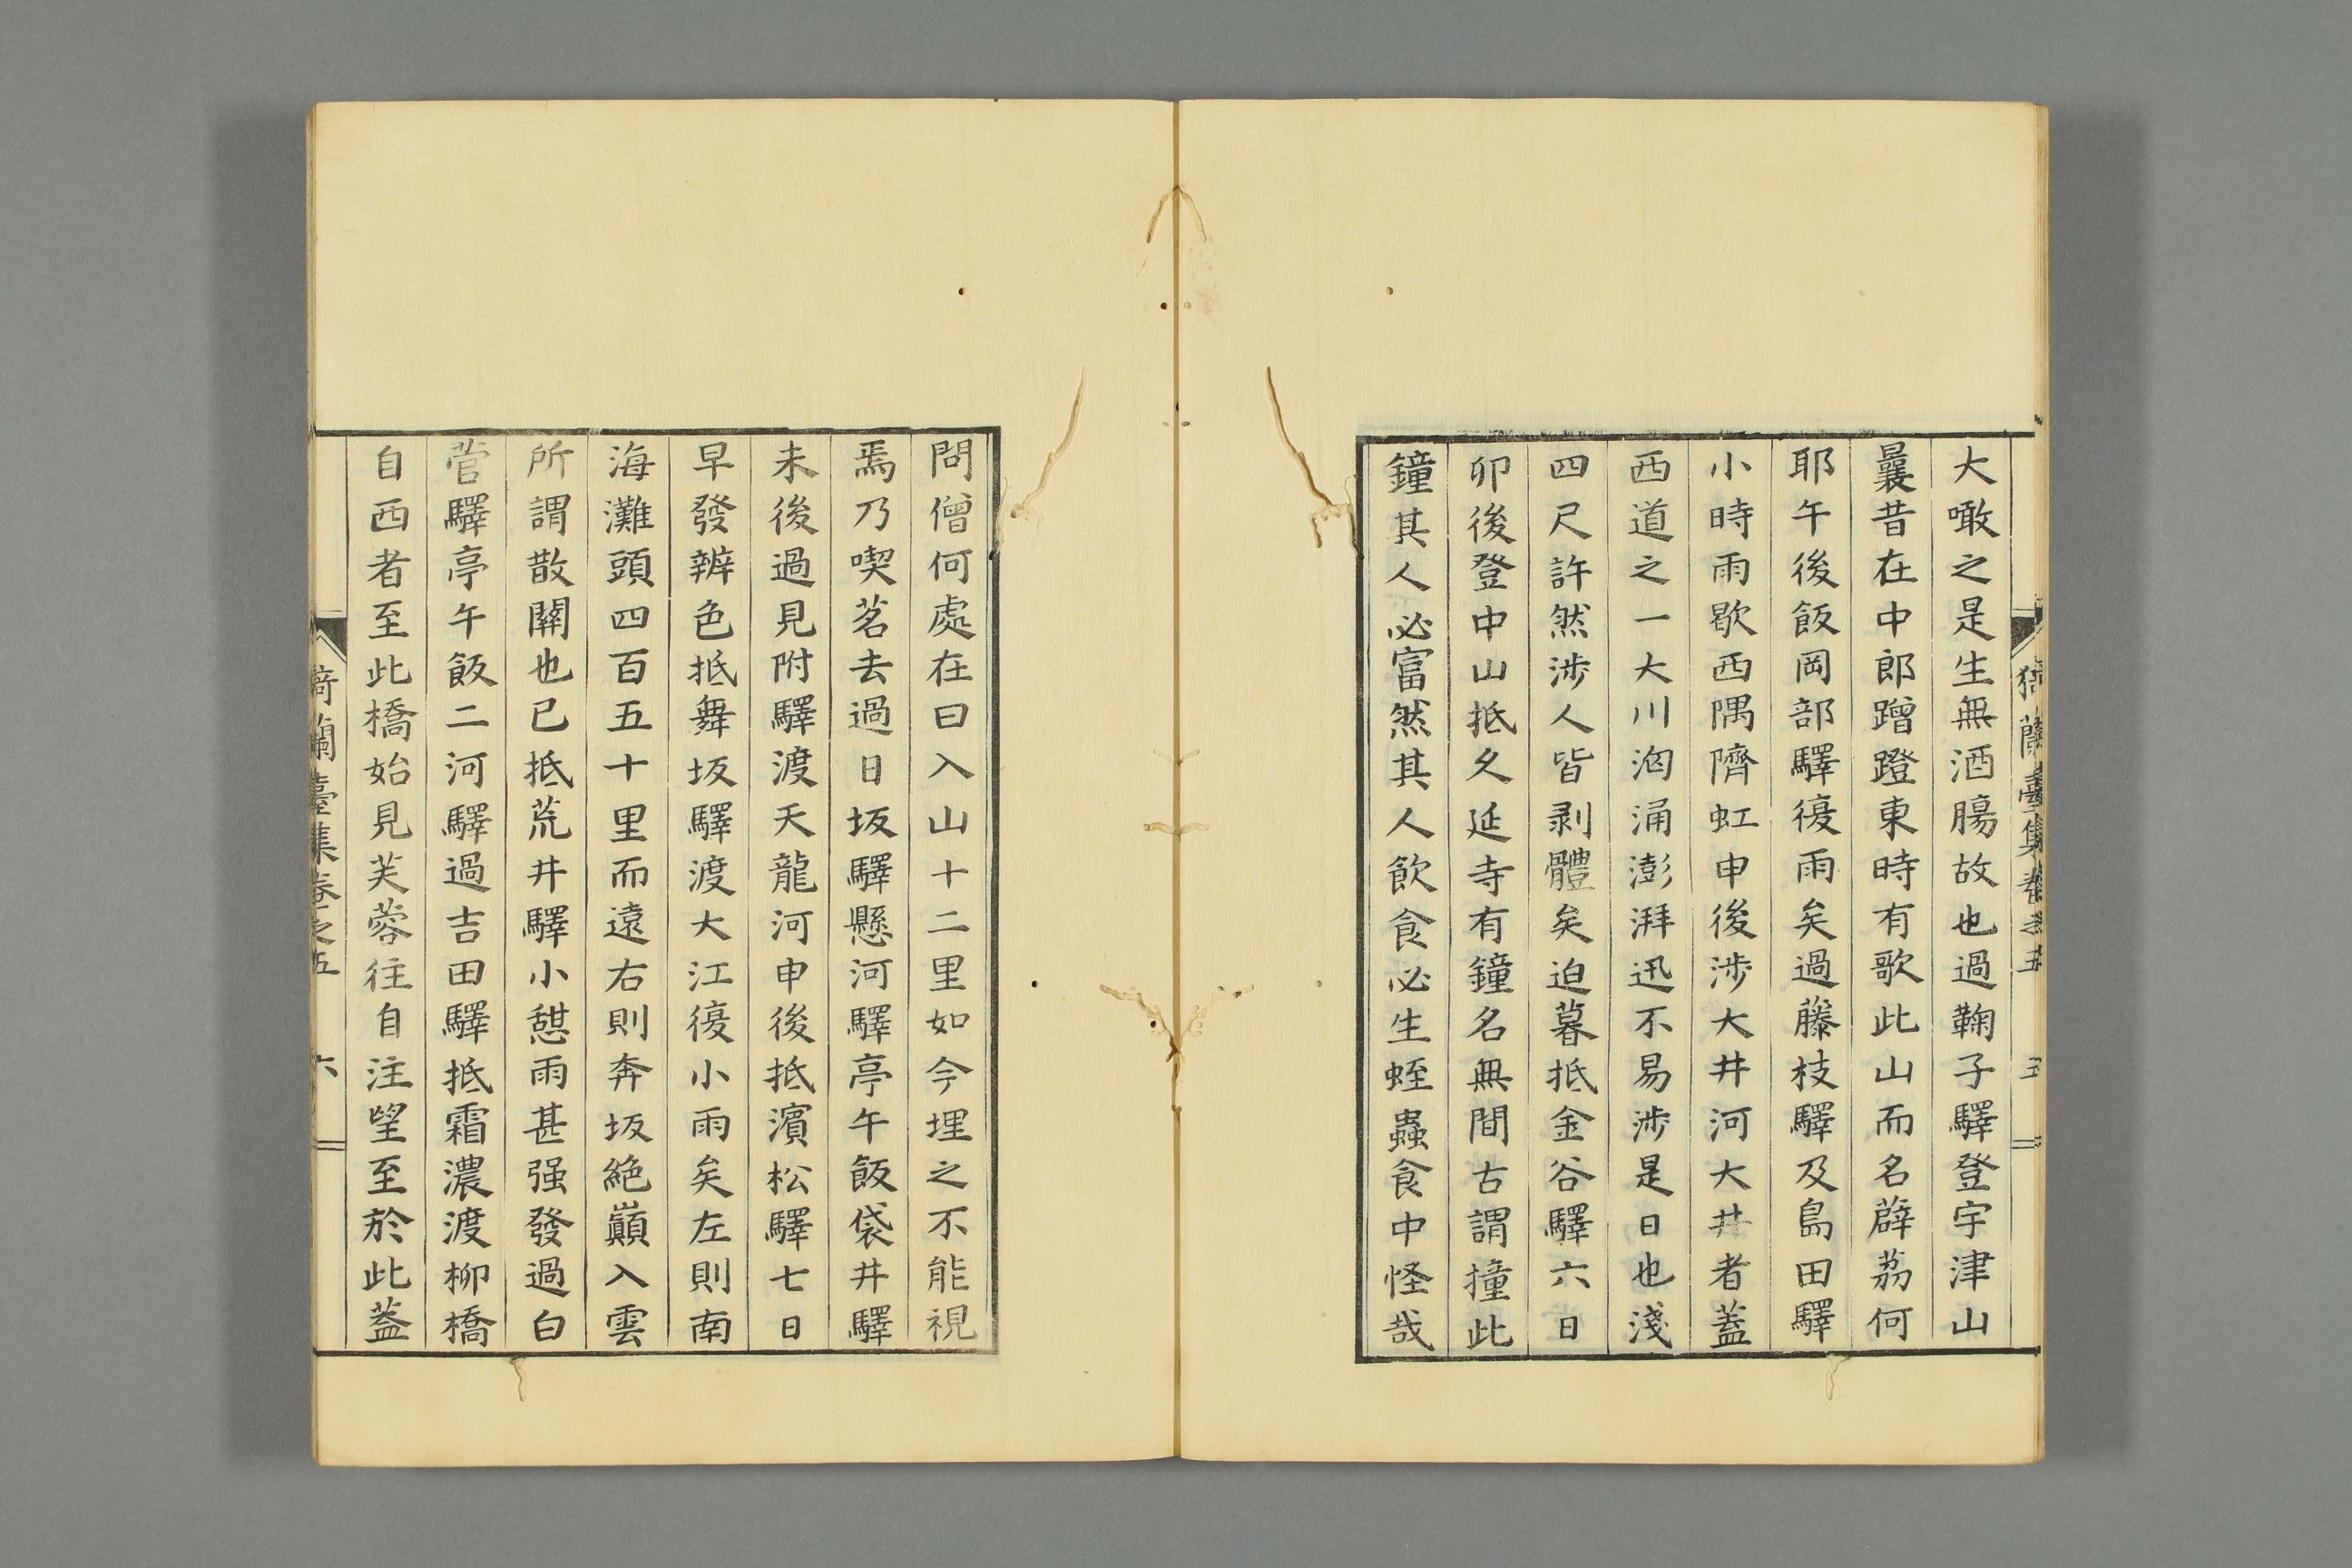 猗蘭臺集卷之五 五
大噉之是生無酒腸故也過鞠子驛登宇津山
曩昔在中郎蹭蹬東時有歌此山而名薜荔何
耶午後飯岡部驛復雨矣過藤枝驛及島田驛
小時雨歇西隅隮虹申後涉大井河大井者蓋
西道之一大川洶涌澎湃迅不易涉是日也淺
四尺許然涉人皆剥體矣迫暮抵金谷驛六日
卯後登中山抵久延寺有鐘名無間古謂撞此
鐘其人必富然其人飲食必生蛭蟲食中怪哉
問僧何處在曰入山十二里如今埋之不能視
焉乃喫茗去過日坂驛懸河驛亭午飯袋井驛
未後過見附驛渡天龍河申後抵濱松驛七日
早發辨色抵舞坂驛渡大江復小雨矣左則南
海灘頭四百五十里而遠右則奔坂絶巔入雲
所謂散關也已抵荒井驛小憇雨甚强發過白
菅驛亭午飯二河驛過吉田驛抵霜濃渡柳橋
自西者至此橋始見芙蓉往自注望至於此蓋
猗蘭臺集卷之五 六